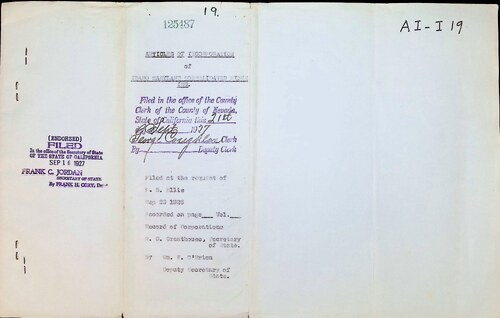 19.
AI-I 19
125487
ARTICLES OF INCORPORATION
of
INC.
Filed in the office of the County
Clerk of the County of Nevada,
State of California this 21st
of Sept 1927
George Coughlan Clerk
By Deputy Clerk
(ENDORSED)
FILED
In the office of the Secretary of State
OF THE STATE OF CALIFORNIA
SEP 16 1927
FRANK C. JORDAN
SECRETARY OF STATE
By FRANK H. CORY, Deputy
Filed at the request of
Sep 21 1922
Recorded as page___ Vol.___
Record of Corporations
Secretary
of State.
By Wm. F. O'Brien
Deputy Secretary of
State.